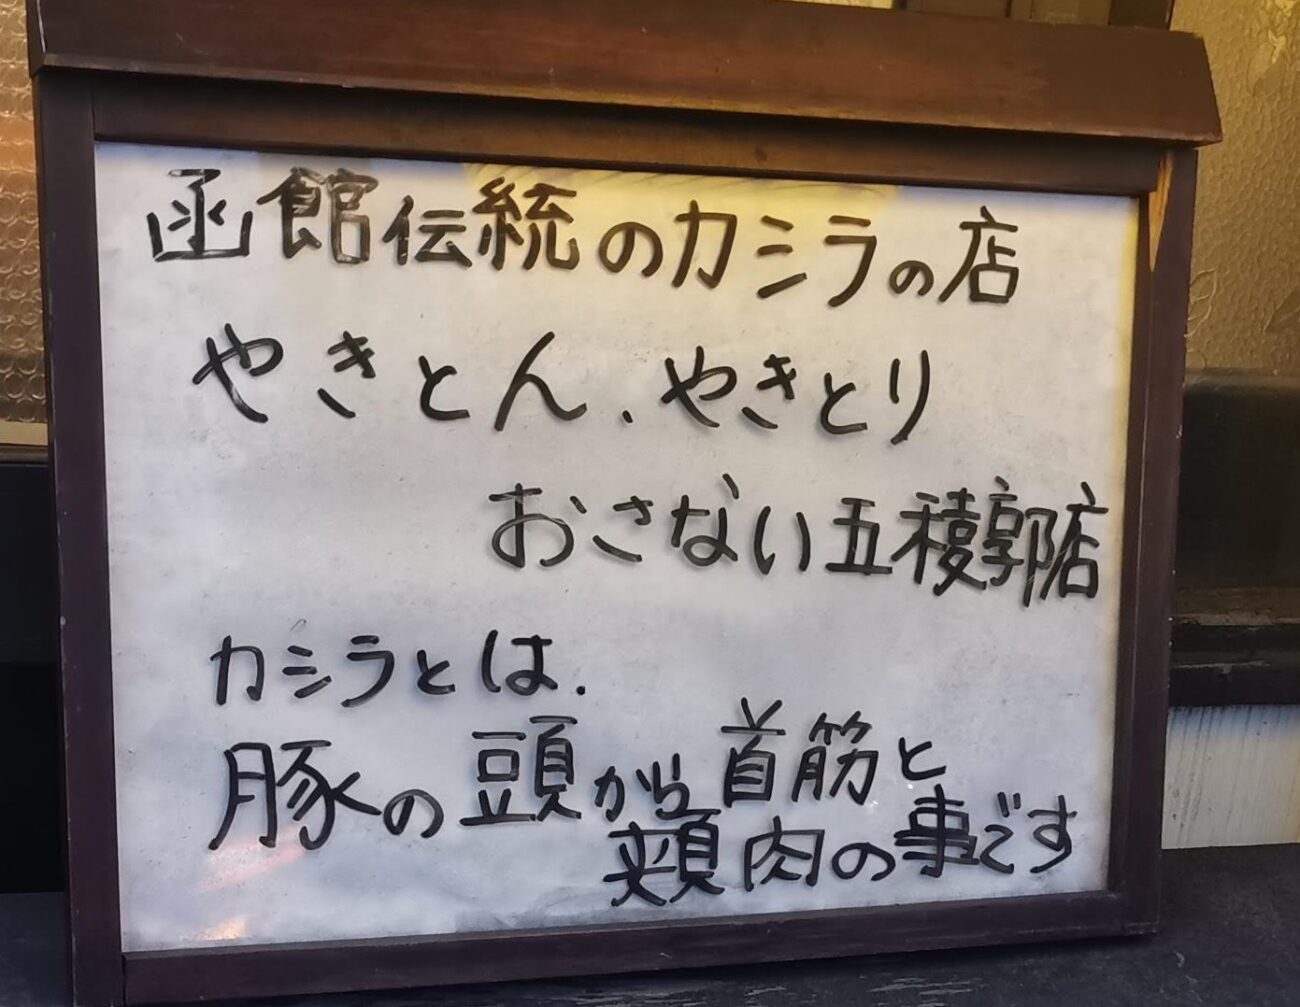 函館伝統のカシラの店
やきとん.やきとり
おさない五稜郭店
カシラとは.
豚の頭から首筋と
頬肉の事です